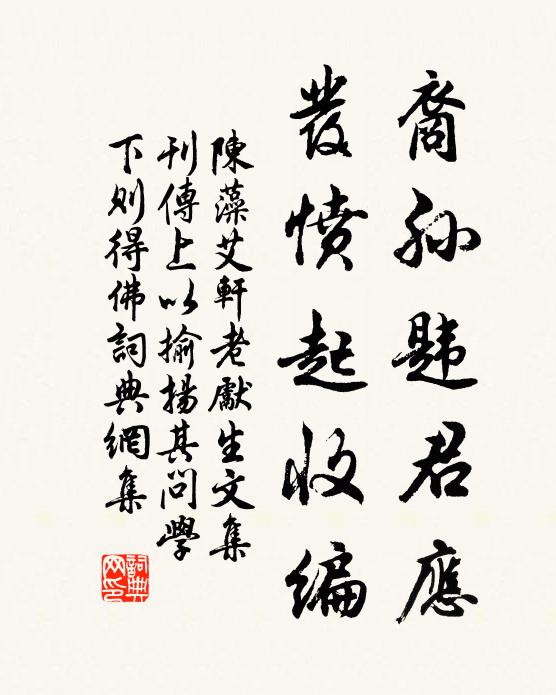 裔孙韪君應
發憤起收編
陳藻艾軒老獻生文集
刊傳上以揄揚其問學
下则得佛詞典網集
詞典网印